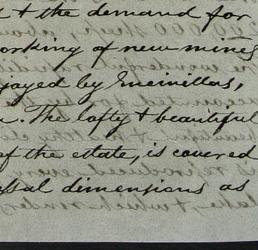 & the demand for
working of new mines
joyed by Encinillas,
The lofty & beautiful
of the estate, is covered
ssal dimensions as